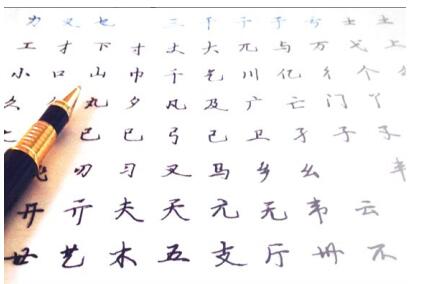 力 又 也 三 干 亍 于 亏 士 土
工 才 下 寸 丈 大 兀 与 万 弋 上
小 口 山 巾 千 乞 川 亿 彳 个
久 丸 夕 凡 及 广 亡 门 丫
已 巳 弓 己 卫 孑 子 孓
刃 习 叉 马 乡 幺 丰
开 亓 夫 天 元 无 韦 云
世 艺 木 五 支 厅 卅 不